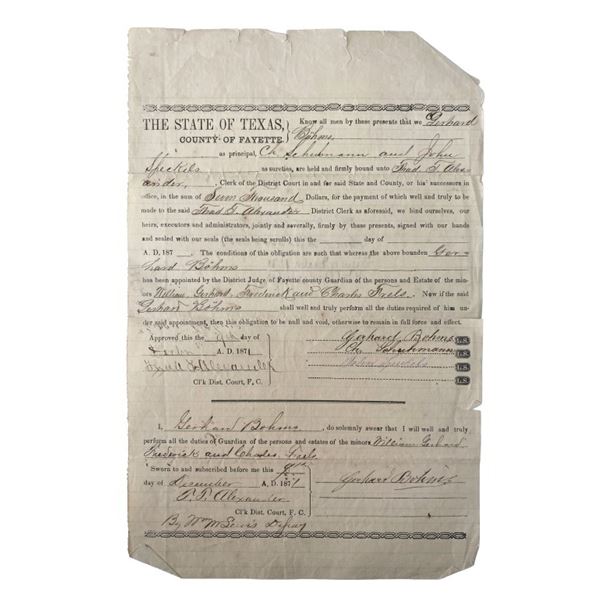 THE STATE OF TEXAS,
COUNTY OF FAYETTE
Know all men by these presents that we Gerhard
Böhms,
as principal, Ch Schuhmann and John
Speckels as sureties, are held and firmly bound unto Thad. T. Alex-
ander, Clerk of the District Court in and for said State and County, or his successors in
office, in the sum of Thousand Dollars, for the payment of which well and truly to be
made to the said Thad T. Alexander District Clerk as aforesaid, we bind ourselves, our
heirs, executors and administrators, jointly and severally, firmly by these presents, signed with our
hands and sealed with our seals (the seals being scrolls) this the day of
A. D. 187 The conditions of this obligation are such that whereas the above bounden Ger-
hard Böhms
has been appointed by the District Judge of Fayette county Guardian of the persons and Estate of the mi-
nors William, Gerhard, Frederick and Charles Now if the said
Gerhard Böhms shall well and truly perform all the duties required of him un-
der said appointment, then this obligation to be null and void, otherwise to remain in full force and effect.
Approved this the 9th day of
A. D. 1871
Thad T. Alexander
Cl'k Dist. Court, F. C.
Gerhard Bohms L.S.
Ch. Schuhmann L.S.
John Speckels L.S.
L.S.
I, Gerhard Bohms, do solemnly swear that I will well and truly
perform all the duties of Guardian of the persons and estates of the minors William Gerhard
Frederick and Charles
Sworn to and subscribed before me this 9th
day of December A. D. 1871
T. T. Alexander
Cl'k Dist. Court, F. C.
By Wm M Lewis Deputy
Gerhard Bohms